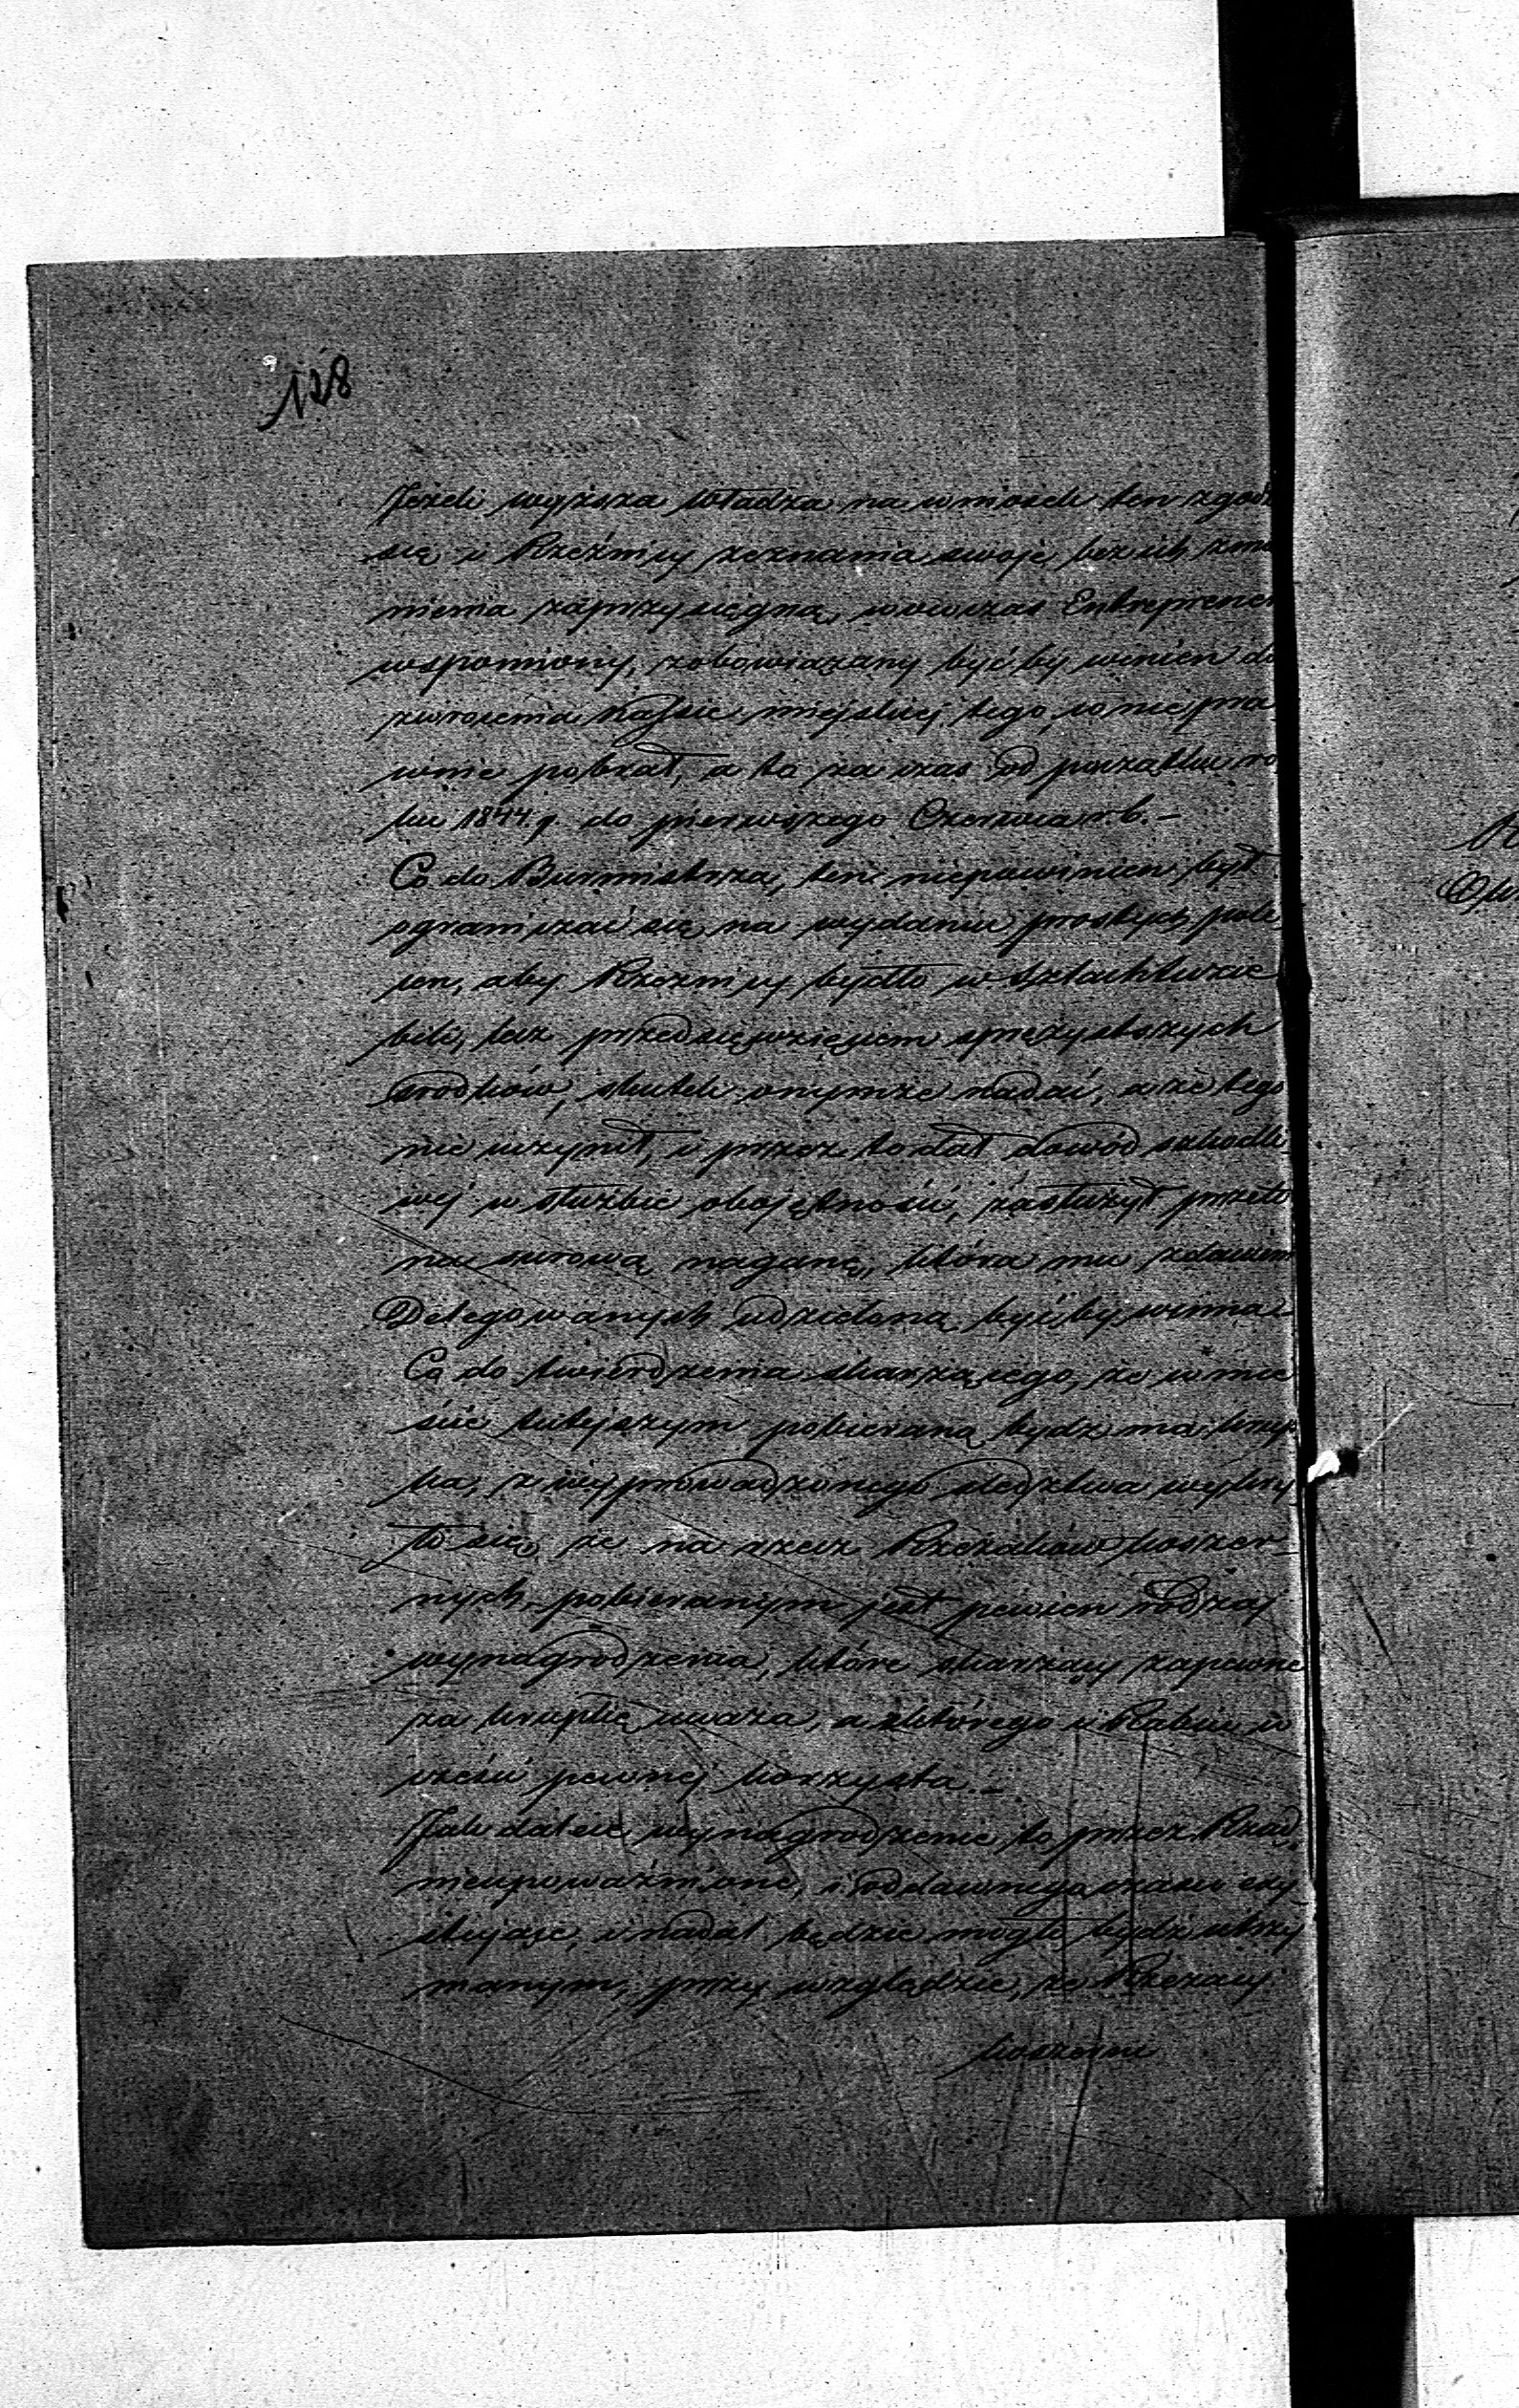 128
Jeżeli wyższa Władza na wniosek ten zgodzi
się, i Rzeźnicy zeznania swoje bez ich zmie
nienia zaprzysięgną, wówczas Entreprener
wspomiony, zobowiązany być by winien do
zwrócenia Kassie miejskiej tego, co nie pra
wnie pobrał, a to za czas od początku ro
ku 1844 r. do pierwszego Czerwca r. b. –
Co do Burmistrza, ten niepowinien był
ograniczać się na wydaniu prostych pole
ceń, aby Rzeźnicy bydło w Szlachtuzie
bili, lecz przedsięwzięciem sprężystszych
środków, skutek onymże nadać, a że tego
nie uczynił, i przez to dał dowód szkodli
wej w służbie obojętności, zasłużył przeto
na surową naganę, która mu zdaniem
Delegowanych udzieloną być by winna. –
Co do twierdzenia skarżącego, że w mie
ście tutejszym pobieraną bydź ma krup
ka, z wyprowadzonego śledztwa wykry
ło się, że na rzecz Rzezaków koszer–
nych pobieranym jest pewien rodzaj
wynagrodzenia, które skarżący zapewne
za krupkę uważa, a z którego i Rabin w
części pewnej korzysta. –
Jak dalece wynagrodzenie to, przez Rząd
nieupoważnione, i od dawnego czasu exy
stujące, i nadal będzie mogło bydź utrzy
manym, przy względzie, że Rzezacy
koszerni